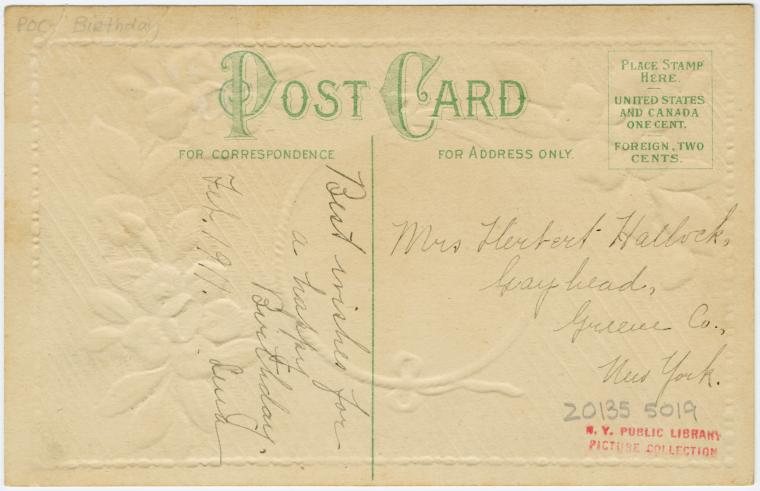 POC-Birthday
POST CARD
PLACE STAMP
HERE.
UNITED STATES
AND CANADA
ONE CENT.
FOREIGN, TWO
CENTS.
FOR CORRESPONDENCE
FOR ADDRESS ONLY.
Best wishes for
a happy
Birthday.
Feb. 1917.
Mrs Herbert Hallock,
Gayhead,
Greene Co.,
New York.
20135 5019
N. Y. PUBLIC LIBRARY
PICTURE COLLECTION